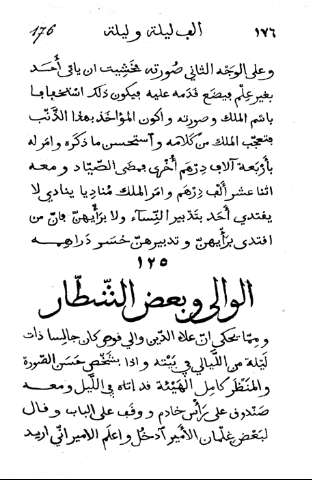 176 الف ليلة وليلة ١٧٦
وعلى الوجه الثاني صورته فخشيت ان ياتي أحد
بغير علم فيضع قدمه عليه فيكون ذلك استخفافا
باسم الملك وصورته واكون المؤاخذ بهذا الذنب
فتعجب الملك من كلامه واستحسن ما ذكره وامر له
بأربعة آلاف درهم أخرى فمضى الصياد ومعه
اثنا عشر ألف درهم وامر الملك مناديا ينادي لا
يقتدي أحد بتدبير النساء ولا برأيهن فان من
اقتدى برأيهن وتدبيرهن خسر دراهمه
١٢٥
الوالي وبعض الشطار
ومما يحكى ان علاء الدين والي قوص كان جالسا ذات
ليلة من الليالي في بيته واذا بشخص حسن الصورة
والمنظر كامل الهيئة قد اتاه في الليل ومعه
صندوق على رأس خادم ووقف على الباب وقال
لبعض غلمان الأمير آدخل واعلم الامير اني اريد